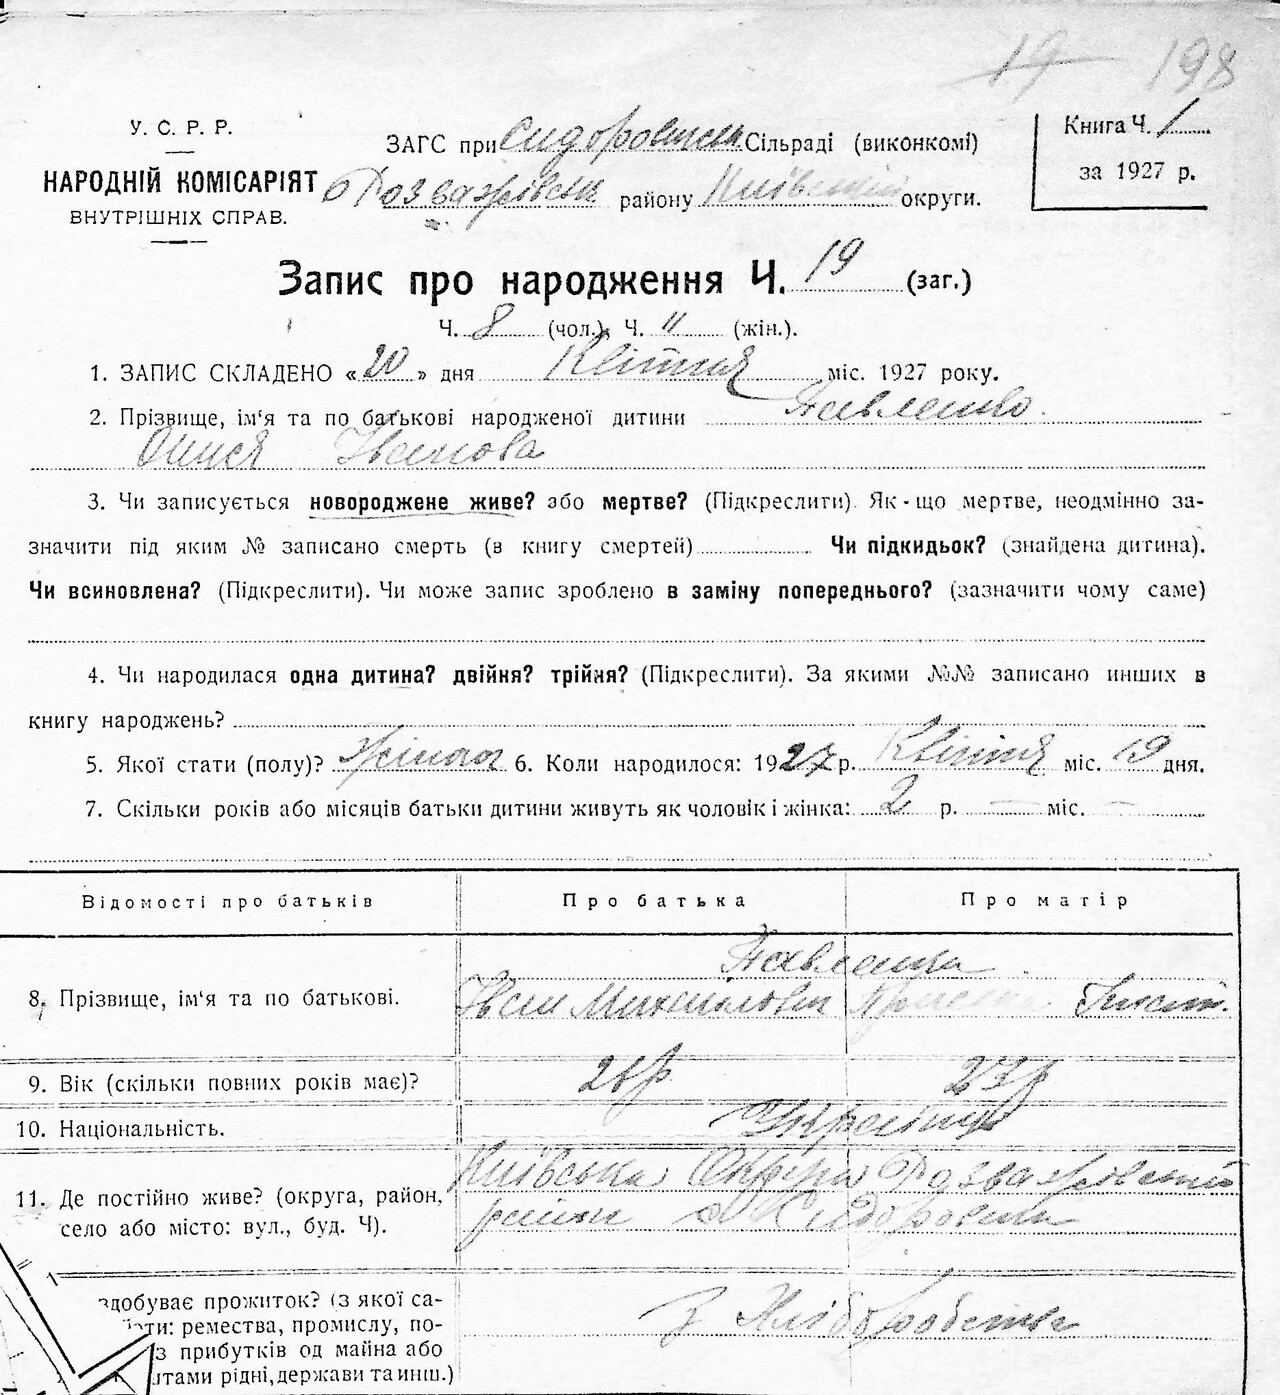 19 198
У. С. Р. Р.
НАРОДНІЙ КОМІСАРІЯТ
ВНУТРІШНІХ СПРАВ.
ЗАГС при Сидоровицьк Сільраді (виконкомі)
Розважівськ району Київській округи.
Книга Ч. 1
за 1927 р.
Запис про народження Ч. 19 (заг.)
Ч. 8 (чол.), Ч. " (жін.).
1. ЗАПИС СКЛАДЕНО «20» дня Квітня міс. 1927 року.
2. Прізвище, ім'я та по батькові народженої дитини Павленко
Іванова
3. Чи записується новороджене живе? або мертве? (Підкреслити). Як-що мертве, неодмінно за-
значити під яким № записано смерть (в книгу смертей) Чи підкидьок? (знайдена дитина).
Чи всиновлена? (Підкреслити). Чи може запис зроблено в заміну попереднього? (зазначити чому саме)
4. Чи народилася одна дитина? двійня? трійня? (Підкреслити). За якими №№ записано инших в
книгу народжень?
5. Якої стати (полу)? жіночої 6. Коли народилося: 1927 р. Квітня міс. 19 дня.
7. Скільки років або місяців батьки дитини живуть як чоловік і жінка: 2 р. — міс. —
Відомості про батьків Про батька Про матір
Павленко
8. Прізвище, ім'я та по батькові. Іван Михайлович
9. Вік (скільки повних років має)? 26 р 27 р
10. Національність. Українці
11. Де постійно живе? (округа, район, село або місто: вул., буд. Ч).
Київська Округа Розважівський
район с Сидоровичі
здобуває прожиток? (з якої са-
ти: ремества, промислу, по-
з прибутків од майна або
штами рідні, держави та инш.)
З Хліборобства